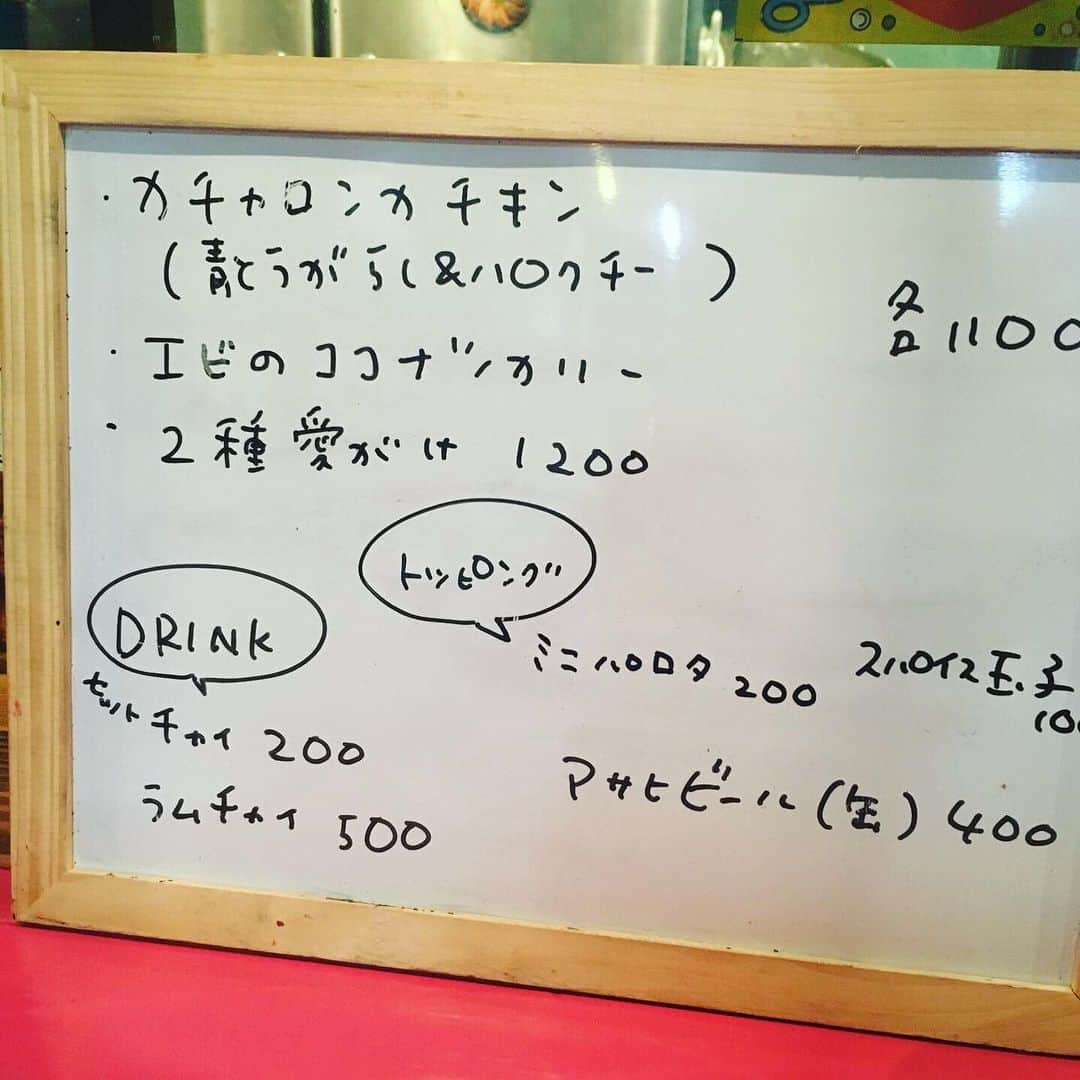 ・カチャロンカチキン
(青とうがらし&パクチー)
各1100
・エビのココナッツカリー
・2種愛がけ 1200
トッピング
DRINK
ミニパロタ 200
スパイス玉子
100
セットチャイ 200
アサヒビール(缶) 400
ラムチャイ 500